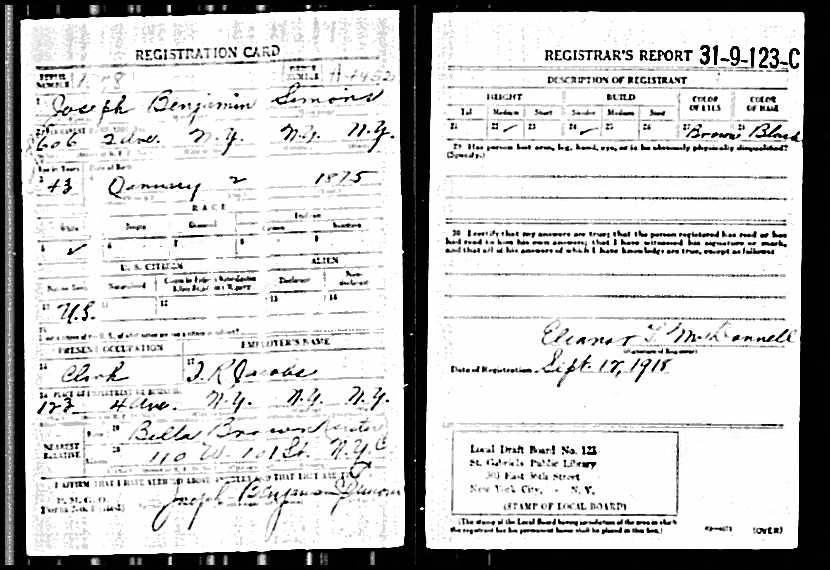 REGISTRATION CARD
SERIAL NUMBER
ORDER NUMBER
1 Joseph Benjamin Simons
606 2 Ave. N.Y. N.Y. N.Y.
Age in Years Date of Birth
43 January 2 1875
RACE
White Negro Oriental Indian
5 ✓ 6 7 8 9
U. S. CITIZEN ALIEN
Native Born Naturalized Declarant Non-declarant
10 U.S. 11 12 13 14
15
PRESENT OCCUPATION EMPLOYER'S NAME
16 Clerk 17 Jacobs
18 PLACE OF EMPLOYMENT OR BUSINESS
123 4 Ave. N.Y. N.Y. N.Y.
NEAREST RELATIVE Name 19 Bella Brown
Address 20 110 W. 101 St. N.Y.C
I AFFIRM THAT I HAVE VERIFIED ABOVE ANSWERS AND THAT THEY ARE TRUE
P. M. G. O.
Form No. 1 (Red) Joseph Benjamin Simons
REGISTRAR'S REPORT 31-9-123-C
DESCRIPTION OF REGISTRANT
HEIGHT BUILD COLOR OF EYES COLOR OF HAIR
Tall Medium Short Slender Medium Stout
21 22 ✓ 23 24 ✓ 25 26 27 Brown 28 Black
29 Has person lost arm, leg, hand, eye, or is he obviously physically disqualified?
(Specify.)
30 I certify that my answers are true; that the person registered has read or has
had read to him his own answers; that I have witnessed his signature or mark,
and that all of his answers of which I have knowledge are true, except as follows:
Eleanor McDonnell
(Signature of Registrar)
Date of Registration Sept. 12, 1918
Local Draft Board No. 123
St. Gabriels Public Library
303 East 36th Street
New York City, - N. Y.
(STAMP OF LOCAL BOARD)
(The stamp of the Local Board having jurisdiction of the area in which
the registrant has his permanent home shall be placed in this box.)
(OVER)